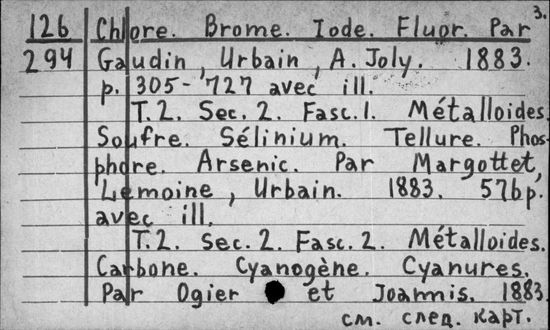 3.
126 Chlore. Brome. Iode. Fluor. Par
294 Gaudin, Urbain, A. Joly. 1883.
p. 305-727 avec ill.
T.2. Sec.2. Fasc.1. Métalloides.
Soufre. Sélinium. Tellure. Phos-
phore. Arsenic. Par Margottet,
Lemoine, Urbain. 1883. 576p.
avec ill.
T.2. Sec.2. Fasc.2. Métalloides.
Carbone. Cyanogène. Cyanures.
Par Ogier et Joannis. 1883
см. след. карт.